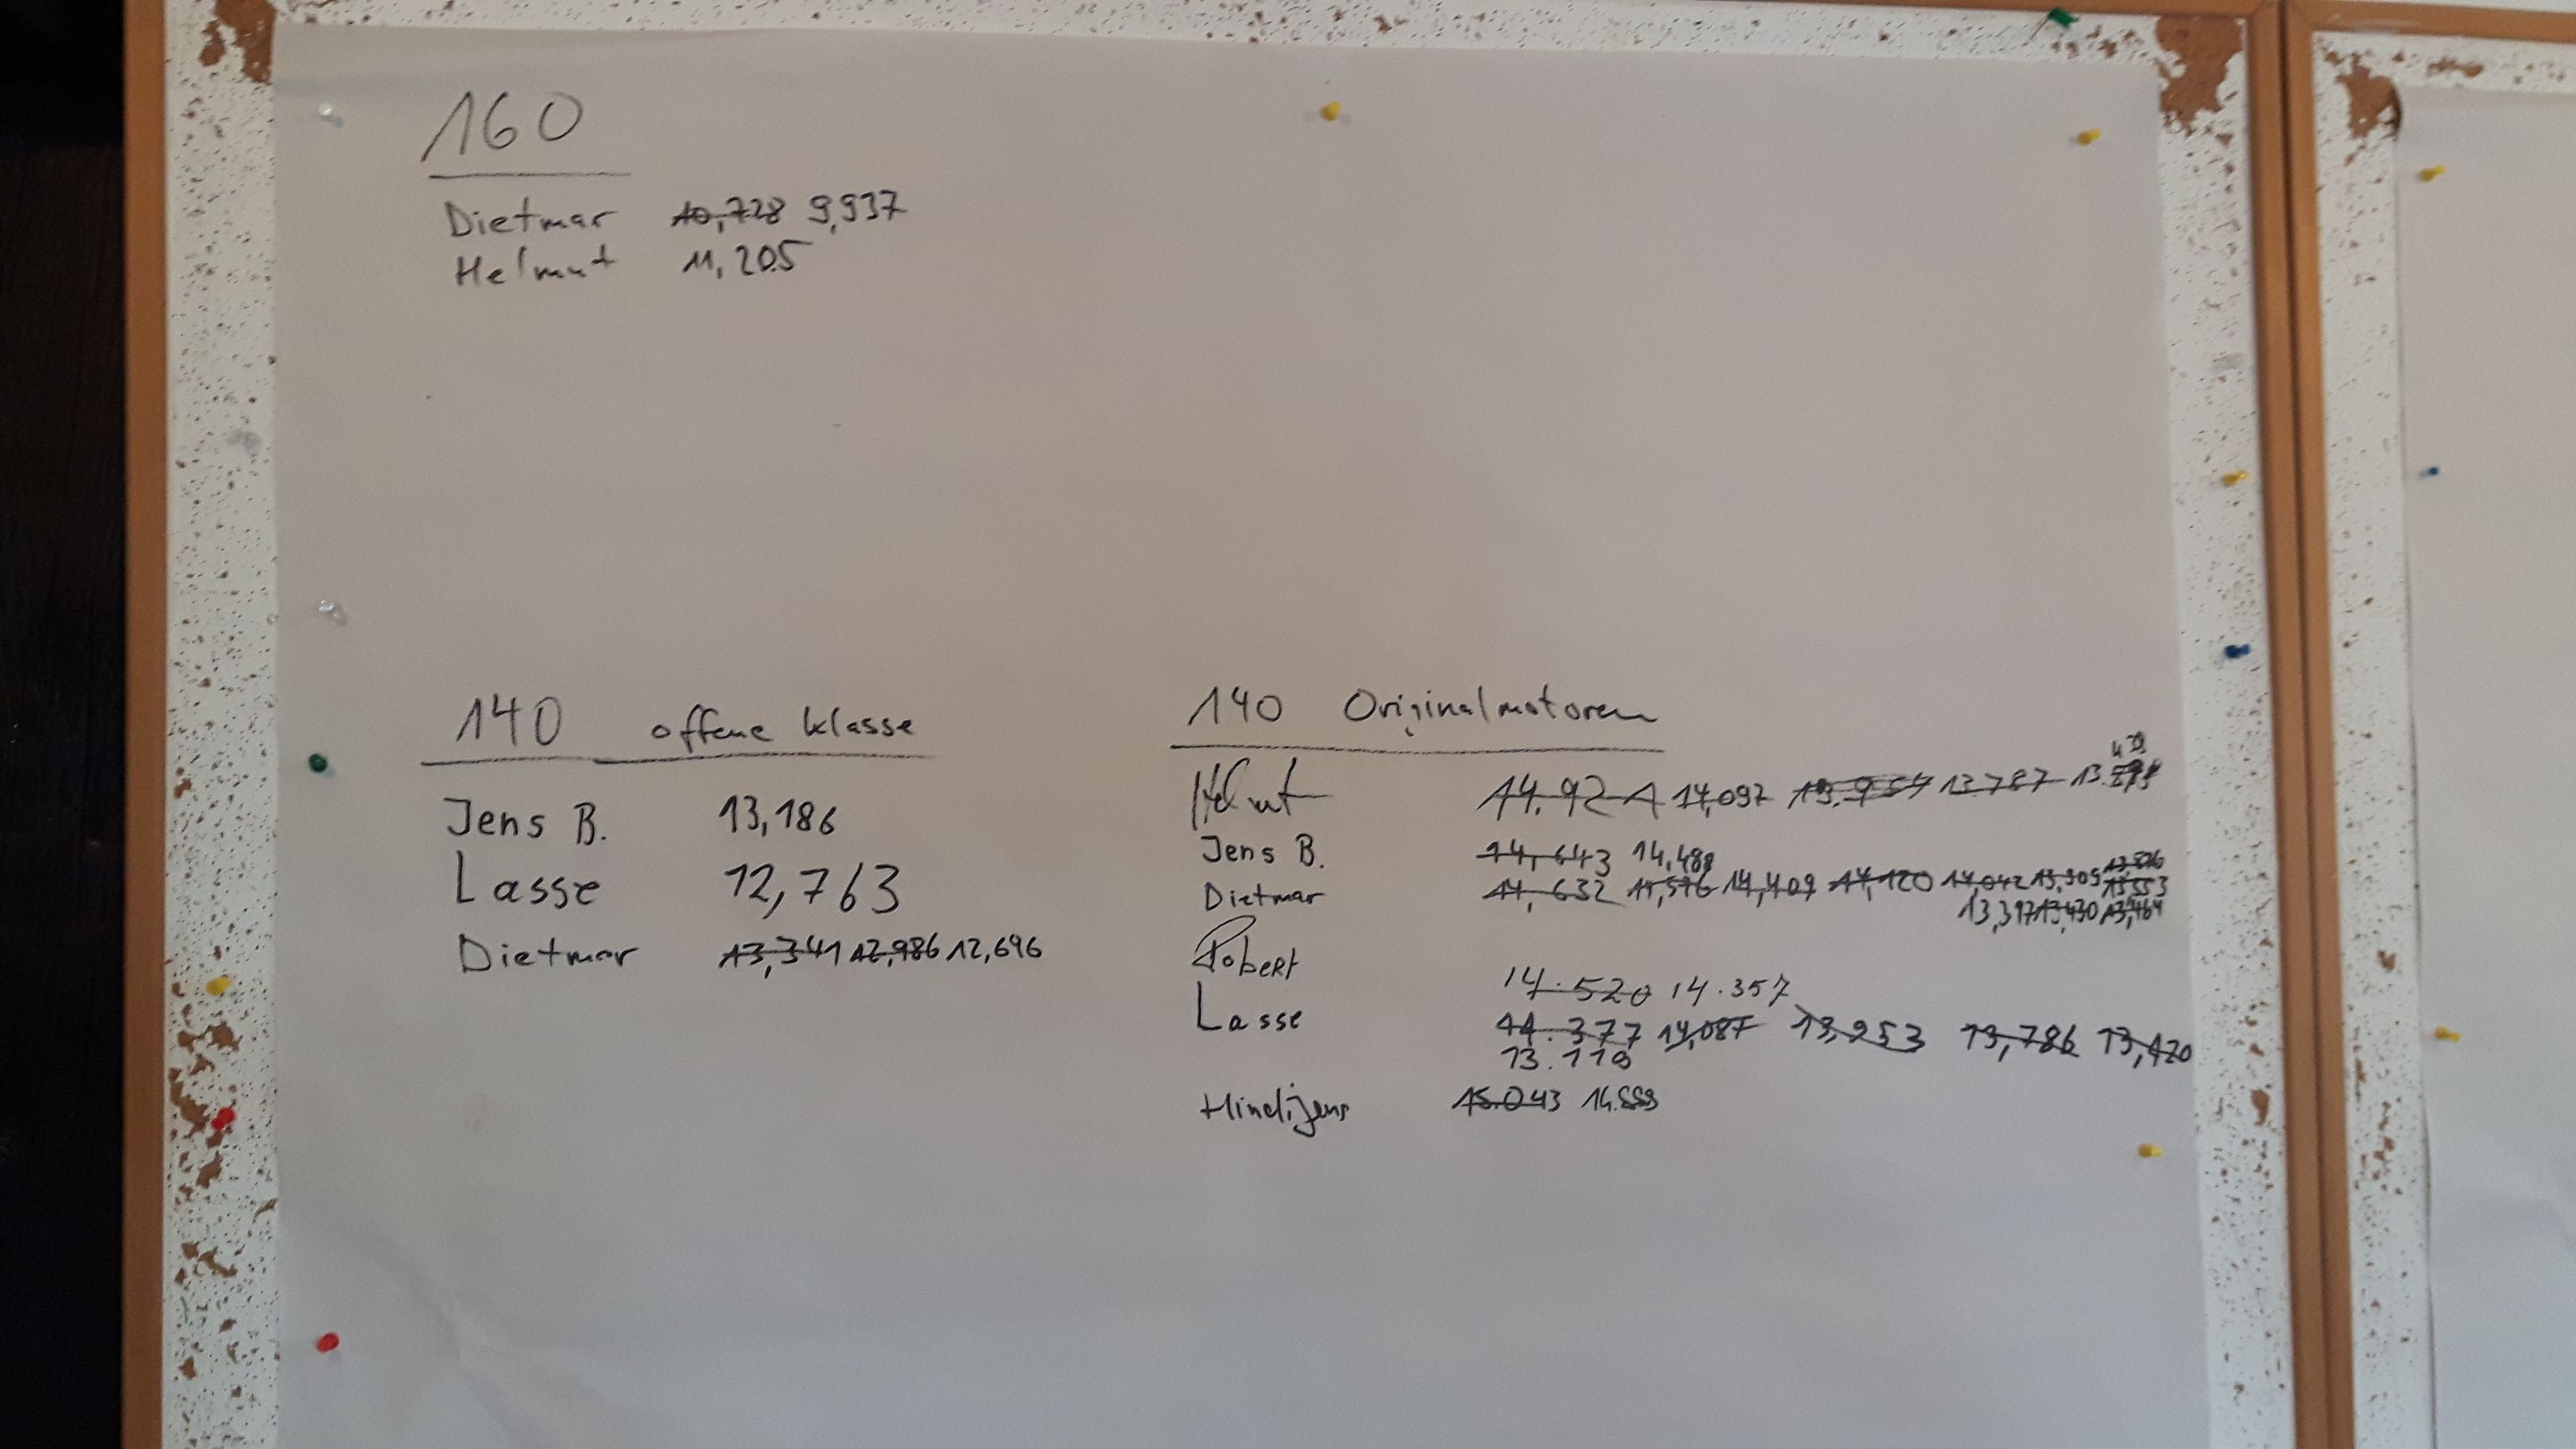 160
Dietmar 10,728 9,937
Helmut 11,205
140 offene Klasse
Jens B. 13,186
Lasse 12,763
Dietmar 13,341 12,986 12,696
140 Originalmotoren
Helmut 14.921 14,097 13.954 13787 13.
Jens B. 14,643 14,488
Dietmar 14,632 14,576 14,409 14,120 14,042 13,909 13,553
13,397 13,430 13,464
Robert 14.520 14.357
Lasse 14.377 14,087 13,953 13,786 13,420
13.119
15.043 14.889